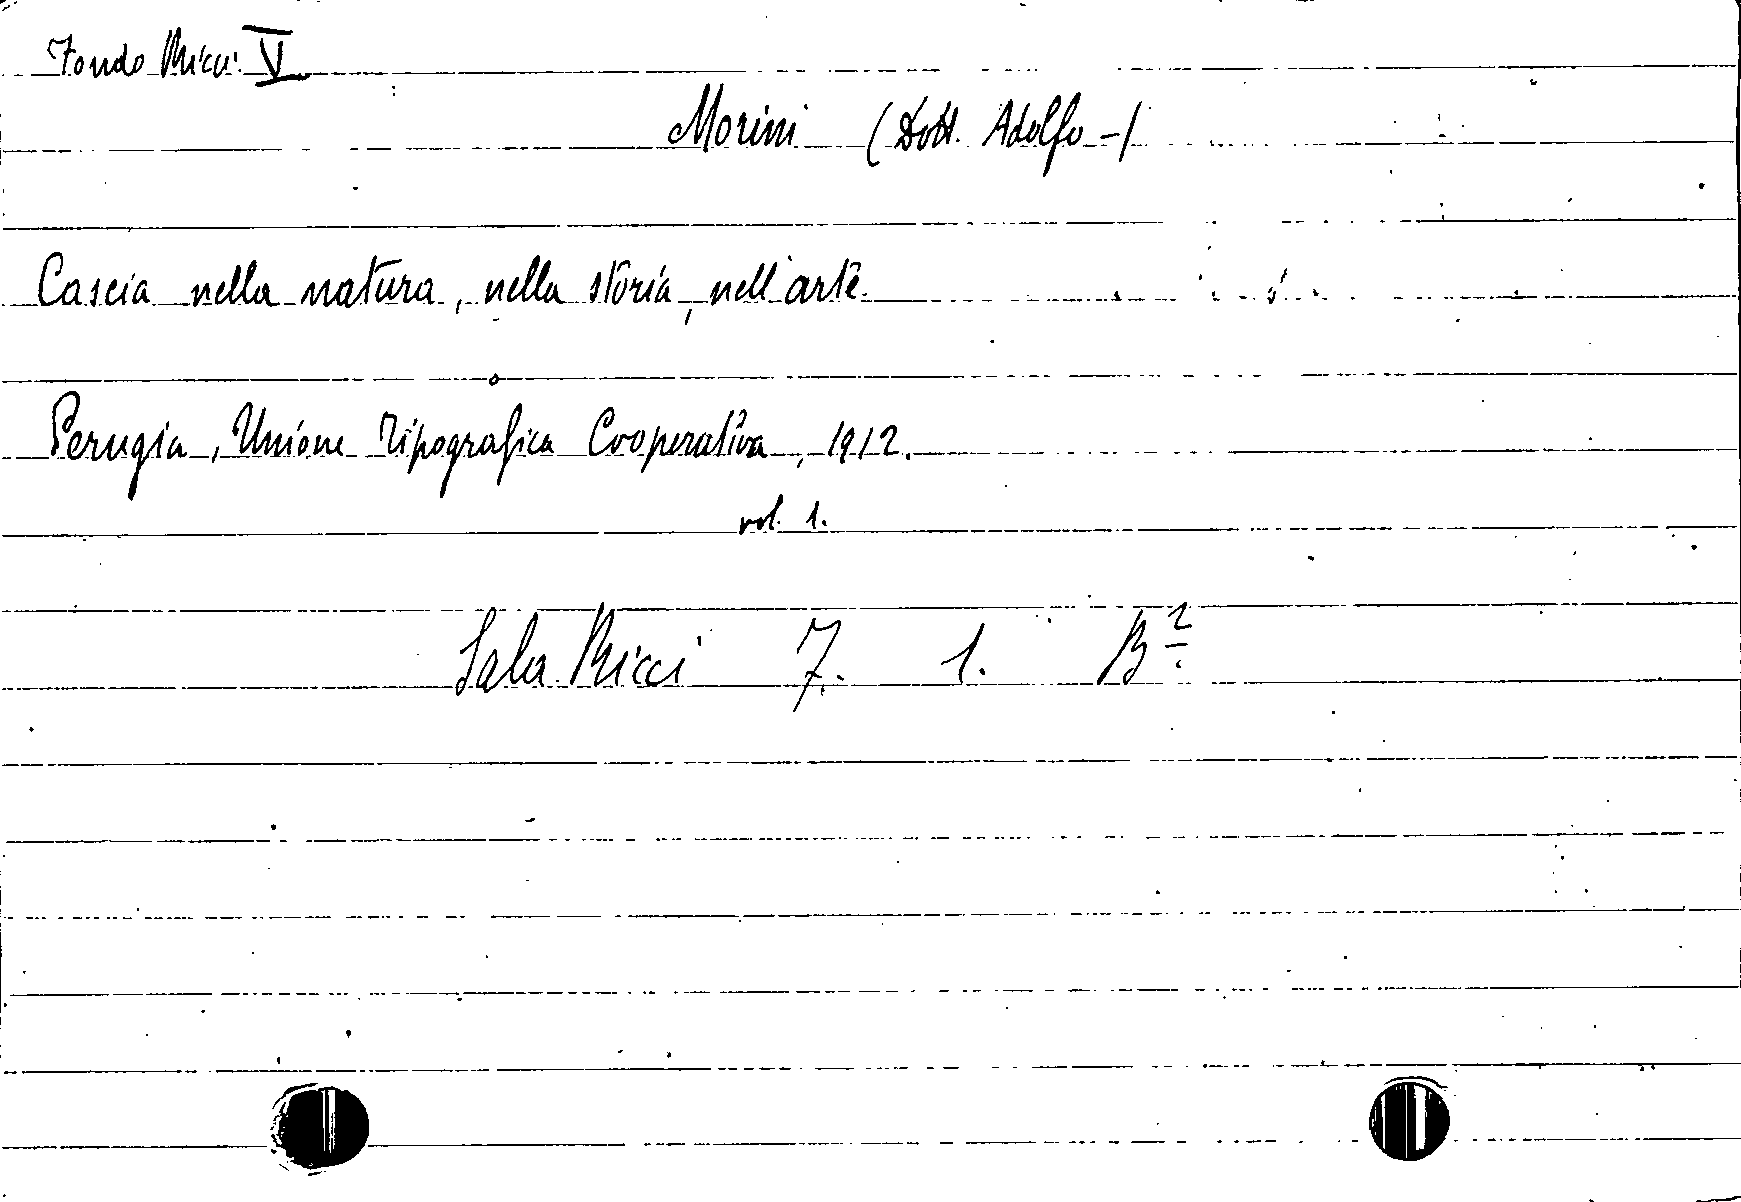 Fondo Ricci V
Morini (Dott. Adolfo -)
Cascia nella natura, nella storia, nell'arte.
Perugia, Unione Tipografica Cooperativa, 1912.
vol. 1.
Sala Ricci 7. 1. B²